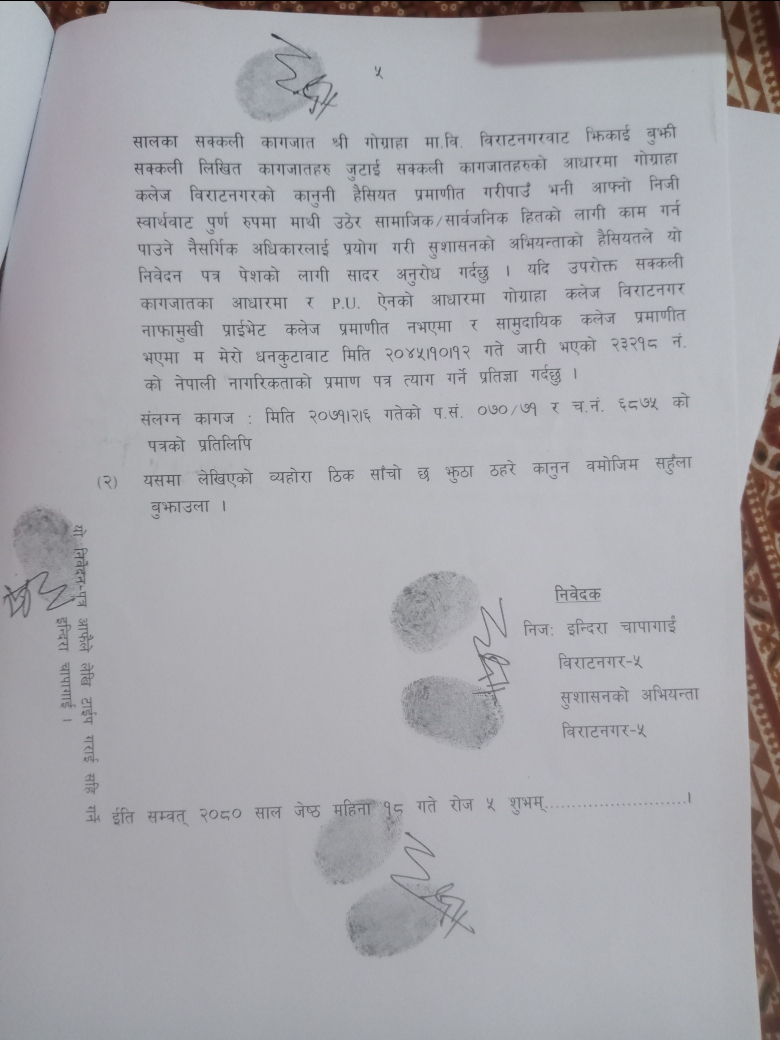 ५
सालका सक्कली कागजात श्री गोग्राहा मा.वि. विराटनगरवाट झिकाई बुझी
सक्कली लिखित कागजातहरु जुटाई सक्कली कागजातहरुको आधारमा गोग्राहा
कलेज विराटनगरको कानुनी हैसियत प्रमाणीत गरीपाउँ भनी आफ्नो निजी
स्वार्थवाट पुर्ण रुपमा माथी उठेर सामाजिक/सार्वजनिक हितको लागी काम गर्न
पाउने नैसर्गिक अधिकारलाई प्रयोग गरी सुशासनको अभियन्ताको हैसियतले यो
निवेदन पत्र पेशको लागी सादर अनुरोध गर्दछु । यदि उपरोक्त सक्कली
कागजातका आधारमा र P.U. ऐनको आधारमा गोग्राहा कलेज विराटनगर
नाफामुखी प्राईभेट कलेज प्रमाणीत नभएमा र सामुदायिक कलेज प्रमाणीत
भएमा म मेरो धनकुटावाट मिति २०४५।१०।१२ गते जारी भएको २३२१८ नं.
को नेपाली नागरिकताको प्रमाण पत्र त्याग गर्ने प्रतिज्ञा गर्दछु ।
संलग्न कागज : मिति २०७१।२।६ गतेको प.सं. ०७०/७१ र च.नं. ६८७५ को
पत्रको प्रतिलिपि
(२) यसमा लेखिएको व्यहोरा ठिक साँचो छ झुठा ठहरे कानुन वमोजिम सहुँला
वुझाउला ।
निवेदक
निज: इन्दिरा चापागाईं
विराटनगर-५
सुशासनको अभियन्ता
विराटनगर-५
यो निवेदन-पत्र आफैले लेखि टाईप गराई सहि गर्ने
इन्दिरा चापागाईं ।
ईति सम्वत् २०८० साल जेष्ठ महिना १८ गते रोज ५ शुभम्..........................।